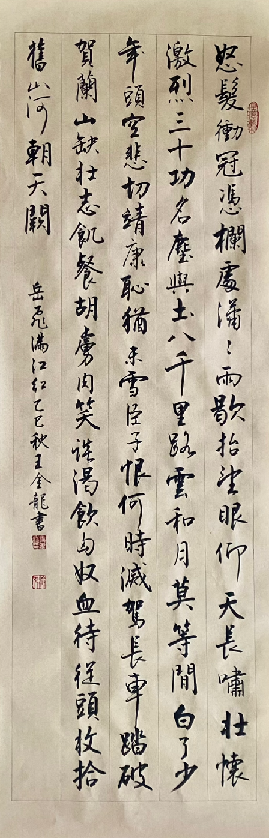 怒髮衝冠憑欄處瀟〻雨歇抬望眼仰天長嘯壯懷
激烈三十功名塵與土八千里路雲和月莫等閒白了少
年頭空悲切靖康恥猶未雪臣子恨何時滅駕長車踏破
賀蘭山缺壯志飢餐胡虜肉笑談渴飲匈奴血待從頭收拾
舊山河朝天闕
岳飛滿江紅乙巳秋王金龍書